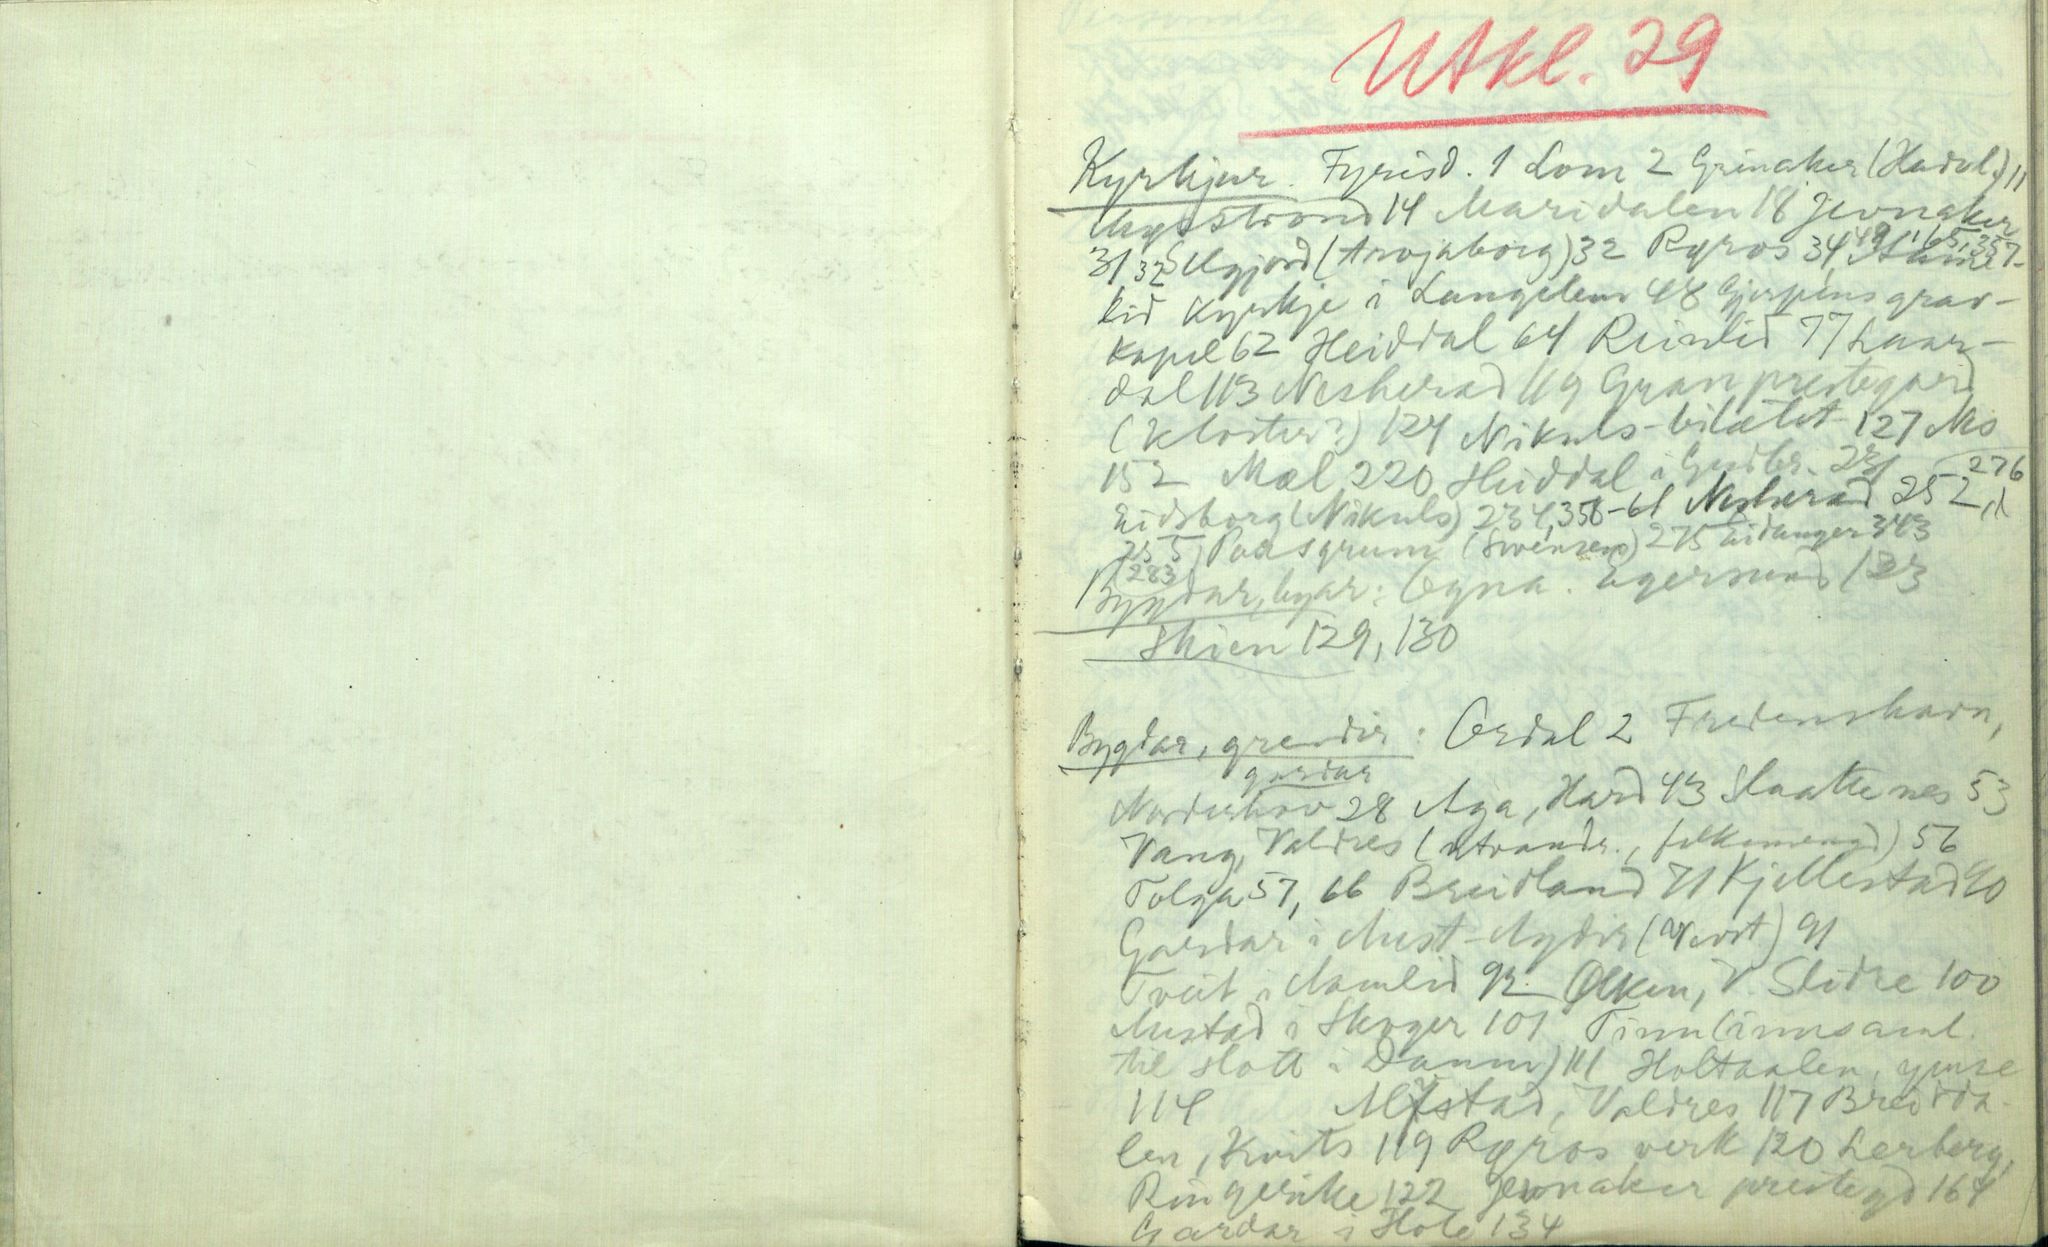 Utkl. 29
Kyrkjur. Fyrisd. 1 Lom 2 Grinaker (Hadel.) 11
strond 14 Maridalen 18 Jevnaker
31, 32 Selgjord (Trojaborg) 32 Røros 34, 49, 165, 357
kyrkje i Langelem 48 Gjerpens grav-
kapel 62 Heiddal 64 Reinlid 77 Laar-
dal 113 Nesherad 119 Gran prestegard
(Kloster?) 124 Nikuls-bilætet 127 Nes
152 Mæl 220 Heiddal i Gudbr. 231
Eidsborg (Nikuls) 234, 356-61 Nesherad 252, 276
255, 283 Porsgrunn 275 Eidanger 343
Bygdar, byar: Ogna. Egersund 123
Skien 129, 130
Bygdar, grendir: Ordal 2 Fredenshavn,
gardar
Norderhov 28 Aga, Hard 43 Slaattenes 53
Vang, Valdres (utvandr., folkemengd) 56
Tolga 57, 66 Breidland 71 Kjellestad 90
Gardar i Aust-Agder 91
Tveit i Aamlid 92 Ølken, V. Slidre 100
Austad i Skoger 101 Tinn (innsaml.
til slott i Danm) 111 Holtaalen, ymse
114 Alfstad, Valdres 117 Breidda-
len, Kvits 119 Røros verk 120 Lerberg,
Ringerike 122 Jevnaker prestegd 164
Gardar i Hole 134